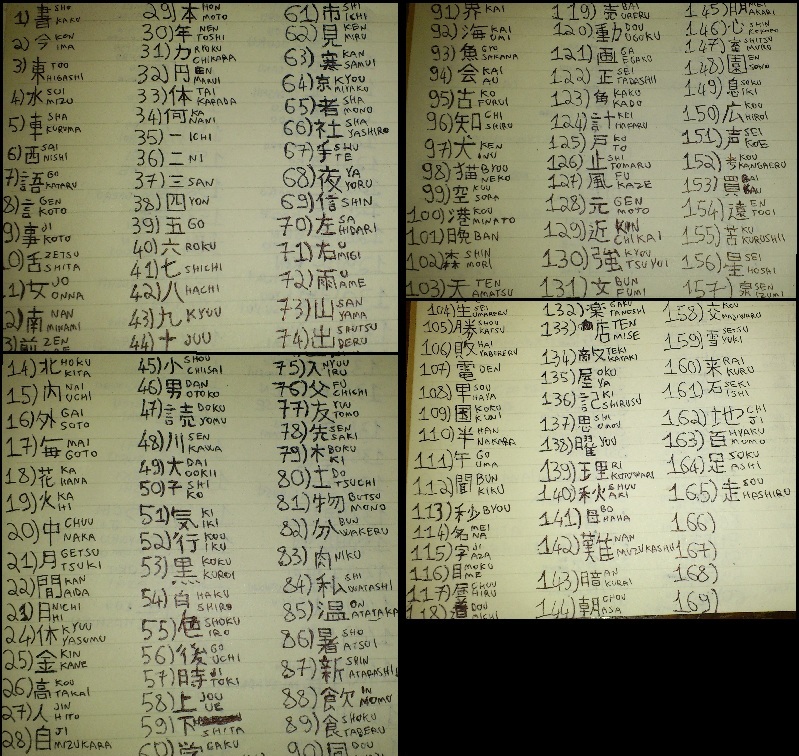 1) 書 SHO KAKU
2) 今 KON IMA
3) 東 TOO HIGASHI
4) 水 SUI MIZU
5) 車 SHA KURUMA
6) 西 SAI NISHI
7) 語 GO KATARU
8) 言 GEN KOTO
9) 事 JI KOTO
10) 舌 ZETSU SHITA
11) 女 JO ONNA
12) 南 NAN MINAMI
13) 前 ZEN
14) 北 HOKU KITA
15) 内 NAI UCHI
16) 外 GAI SOTO
17) 毎 MAI GOTO
18) 花 KA HANA
19) 火 KA HI
20) 中 CHUU NAKA
21) 月 GETSU TSUKI
22) 間 KAN AIDA
23) 日 NICHI HI
24) 休 KYUU YASUMU
25) 金 KIN KANE
26) 高 KOU TAKAI
27) 人 JIN HITO
28) 自 JI MIZUKARA
29) 本 HON MOTO
30) 年 NEN TOSHI
31) 力 RYOKU CHIKARA
32) 円 EN MARUI
33) 体 TAI KARADA
34) 何 KA NANI
35) 一 ICHI
36) 二 NI
37) 三 SAN
38) 四 YON
39) 五 GO
40) 六 ROKU
41) 七 SHICHI
42) 八 HACHI
43) 九 KYUU
44) 十 JUU
45) 小 SHOU CHIISAI
46) 男 DAN OTOKO
47) 読 DOKU YOMU
48) 川 SEN KAWA
49) 大 DAI OOKII
50) 子 SHI KO
51) 気 KI IKI
52) 行 KOU IKU
53) 黒 KOKU KUROI
54) 白 HAKU SHIRO
55) 色 SHOKU IRO
56) 後 GO UCHI
57) 時 JI TOKI
58) 上 JOU UE
59) 下 SHITA
60) 学 GAKU
61) 市 SHI ICHI
62) 見 KEN MIRU
63) 寒 KAN SAMUI
64) 京 KYOU MIYAKO
65) 者 SHA MONO
66) 社 SHA YASHIRO
67) 手 SHU TE
68) 夜 YA YORU
69) 信 SHIN
70) 左 SA HIDARI
71) 右 U MIGI
72) 雨 U AME
73) 山 SAN YAMA
74) 出 SHUTSU DERU
75) 入 NYUU IRU
76) 父 FU CHICHI
77) 友 YUU TOMO
78) 先 SEN SAKI
79) 木 BOKU KI
80) 土 DO TSUCHI
81) 物 BUTSU MONO
82) 分 BUN WAKERU
83) 肉 NIKU
84) 私 SHI WATASHI
85) 温 ON ATATAKA
86) 暑 SHO ATSUI
87) 新 SHIN ATARASHII
88) 飲 IN NOMU
89) 食 SHOKU TABERU
90) 同 DOU
91) 界 KAI
92) 海 KAI UMI
93) 魚 GYO SAKANA
94) 会 KAI AU
95) 古 KO FURUI
96) 知 CHI SHIRU
97) 犬 KEN INU
98) 猫 BYOU NEKO
99) 空 KUU SORA
100) 港 KOU MINATO
101) 晩 BAN
102) 森 SHIN MORI
103) 天 TEN AMATSU
104) 生 SEI UMARERU
105) 勝 SHOU KATSU
106) 敗 HAI YABURERU
107) 電 DEN
108) 早 SOU HAYA
109) 国 KOKU KUNI
110) 半 HAN NAKARA
111) 午 GO UMA
112) 聞 BUN KIKU
113) 秒 BYOU
114) 名 MEI NA
115) 字 JI AZA
116) 目 MOKU ME
117) 昼 CHUU HIRU
118) 道 DOU MICHI
119) 売 BAI UERU
120) 動 DOU UGOKU
121) 画 GA EGAKU
122) 正 SEI TADASHII
123) 角 KAKU KADO
124) 計 KEI HAKARU
125) 戸 KO TO
126) 止 SHI TOMARU
127) 風 FU KAZE
128) 元 GEN MOTO
129) 近 KIN CHIKAI
130) 強 KYOU TSUYOI
131) 文 BUN FUMI
132) 楽 GAKU TANOSHI
133) 店 TEN MISE
134) 敵 TEKI KATAKI
135) 屋 OKU YA
136) 記 KI SHIRUSU
137) 思 SHI OMOU
138) 曜 YOU
139) 理 RI KOTOWARI
140) 秋 SHUU AKI
141) 母 BO HAHA
142) 難 NAN MUZUKASHII
143) 暗 AN KURAI
144) 朝 CHOU ASA
145) 明 AKARI
146) 心 SHIN KOKORO
147) 室 SHITSU MURO
148) 園 EN SONO
149) 息 SOKU IKI
150) 広 KOU HIROI
151) 声 SEI KOE
152) 考 KOU KANGAERU
153) 買 BAI KAU
154) 遠 EN TOOI
155) 苦 KU KURUSHII
156) 星 SEI HOSHI
157) 泉 SEN IZUMI
158) 交 KOU MAJIWARU
159) 雪 SETSU YUKI
160) 来 RAI KURU
161) 石 SEKI ISHI
162) 地 CHI JI
163) 百 HYAKU MOMO
164) 足 SOKU ASHI
165) 走 SOU HASHIRU
166)
167)
168)
169)